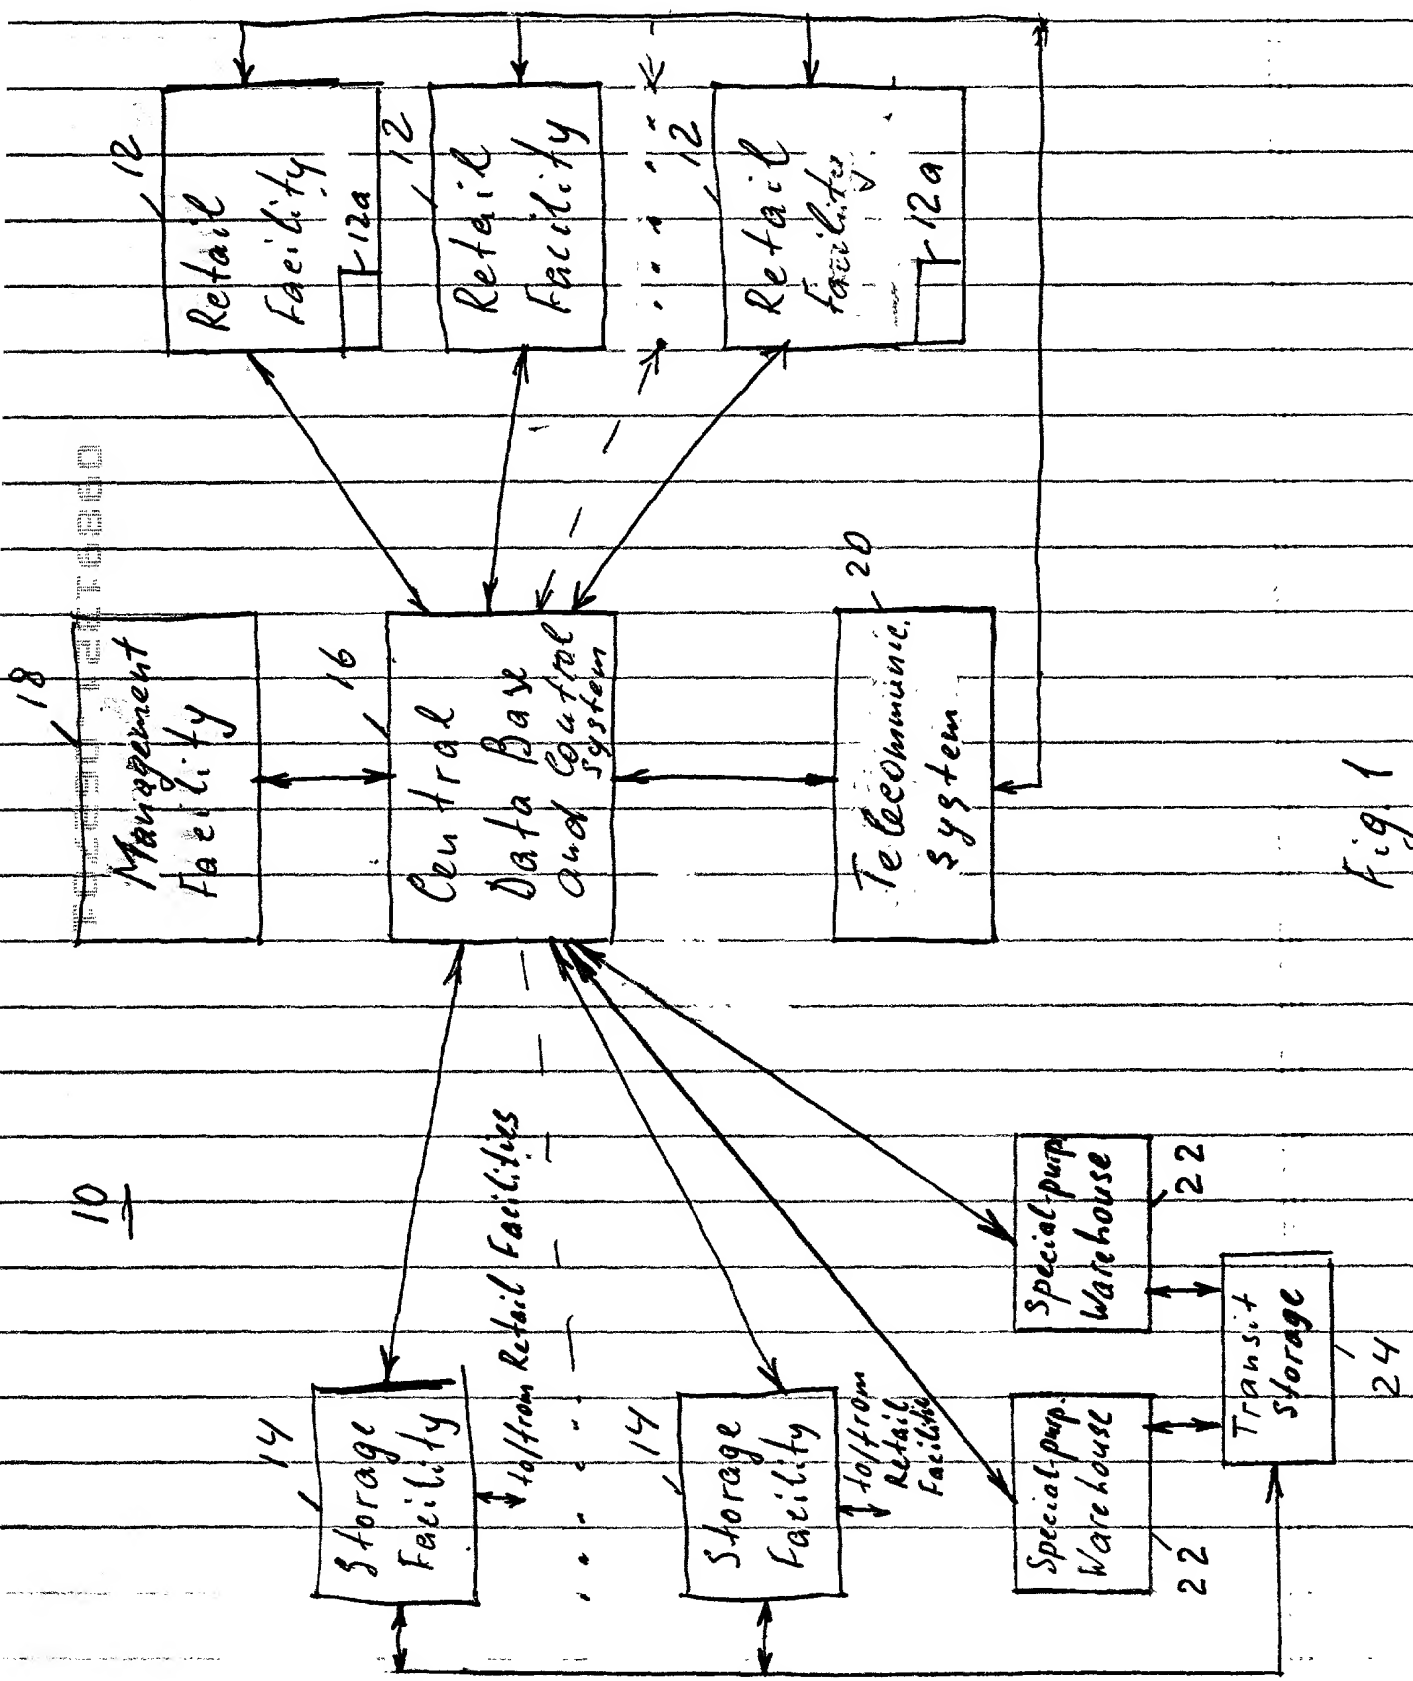 10
18
Management
Facility
16
Central
Data Base
and Control
System
20
Telecommunic.
System
12
Retail
Facility
12a
12
Retail
Facility
12
Retail
Facility
12a
14
Storage
Facility
to/from Retail Facilities
14
Storage
Facility
to/from
Retail
Facilitie
Special-purp.
Warehouse
22
Special-purp
Warehouse
22
Transit
Storage
24
Fig. 1